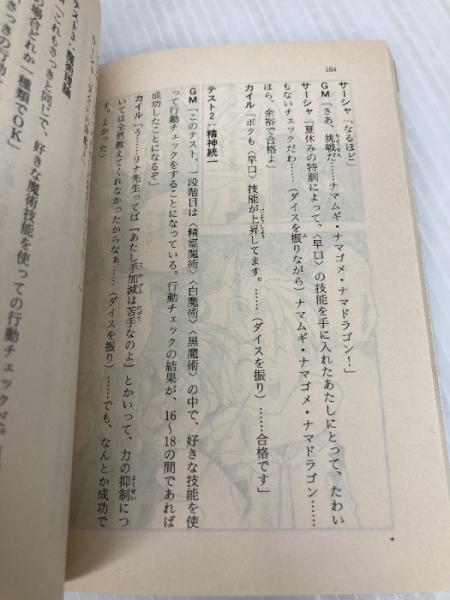 164
サーシャ「なるほど」
GM「さあ、挑戦だ……ナマムギ・ナマゴメ・ナマドラゴン！」
サーシャ「夏休みの特訓によって、〈早口〉の技能を手に入れたあたしにとって、たわい
もないチェックだわ……（ダイスを振りながら）ナマムギ・ナマゴメ・ナマドラゴン……
ほら、余裕で合格よ」
カイル「ボクも〈早口〉技能が上昇してます。……（ダイスを振り）……合格です」
テスト2：精神統一
GM「このテスト、一段階目は〈精霊魔術〉〈白魔術〉〈黒魔術〉の中で、好きな技能を使
って行動チェックをすることになっている。行動チェックの結果が、16～18の間であれば
成功したことになるぞ」
カイル「う……リナ先生ってば『あたし手加減は苦手なのよ』とかいって、力の抑制につ
いては全然教えてくれなかったからなぁ……（ダイスを振り）……でも、なんとか成功で
す。よかった」
テスト3：魔術理論
「これもさっきと同じで、好きな魔術技能を使っての行動チェック
の場合どれか一種類でOK」
さっきの行動